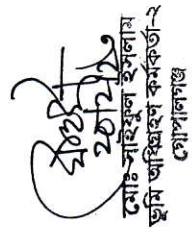 মোঃ সাইফুল ইসলাম
ভূমি অধিগ্রহণ কর্মকর্তা-২
গোপালগঞ্জ